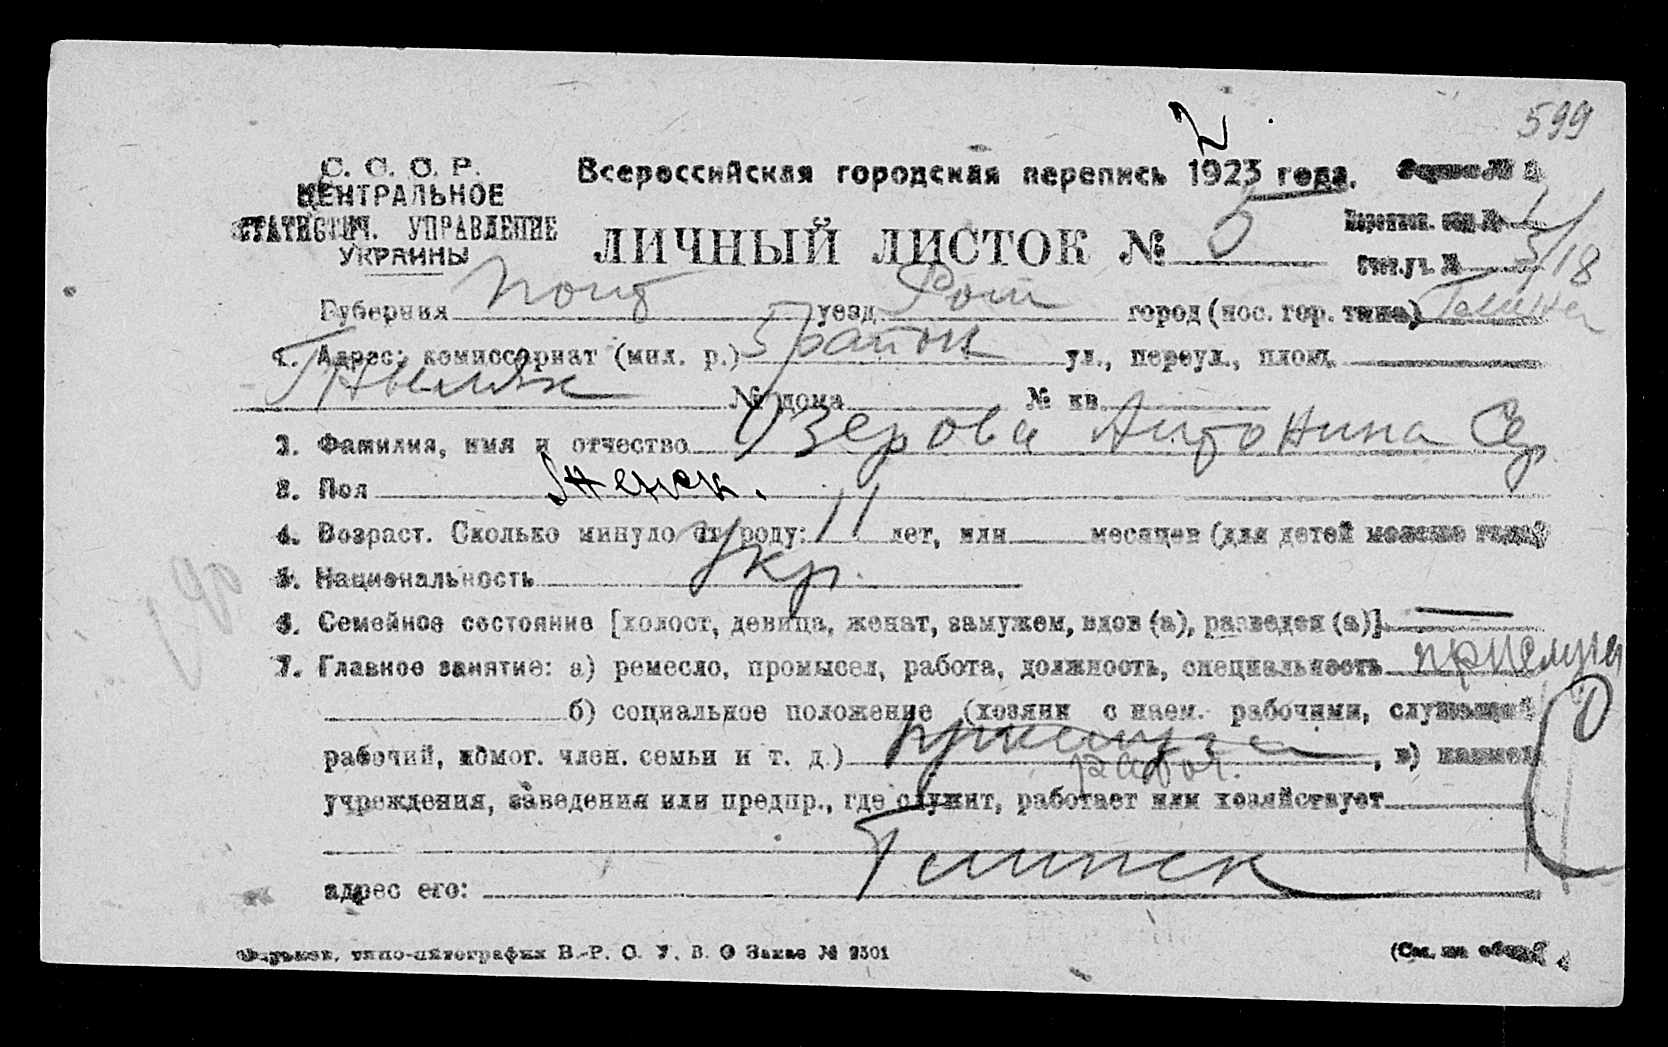 2
599
С. С. С. Р.
ЦЕНТРАЛЬНОЕ
СТАТИСТИЧ. УПРАВЛЕНИЕ
УКРАИНЫ
Всероссийская городская перепись 1923 года.
Форма № 1
ЛИЧНЫЙ ЛИСТОК № 5
Счет. уч. № 3/18
Губерния Полт уезд Ром город (пос. гор. типа)
1. Адрес: комиссариат (мил. р.) 5 район ул., переул., площ.
№ дома № кв.
2. Фамилия, имя и отчество Озерова Антонина
3. Пол Женск.
4. Возраст. Сколько минуло от роду: 11 лет, или месяцев (для детей моложе года)
5. Национальность Укр.
6. Семейное состояние [холост, девица, женат, замужем, вдов (а), разведен (а)] —
7. Главное занятие: а) ремесло, промысел, работа, должность, специальность прислуга
б) социальное положение (хозяин с наем. рабочими, служащий
рабочий, помог. член. семьи и т. д.) прислуга, в) наимен
рабоч.
учреждения, заведения или предпр., где служит, работает или хозяйствует
адрес его: Глинск
Харьков, типо-литография В.-Р. С. У. В. О Заказ № 2301
(См. на обор